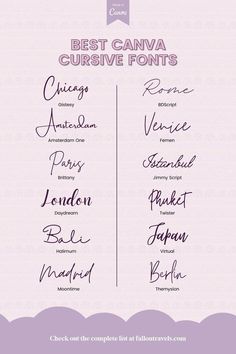 Canva
BEST CANVA
CURSIVE FONTS
Chicago
Gistesy
Amsterdam
Amsterdam One
Paris
Brittany
London
Daydream
Bali
Halimum
Madrid
Moontime
Rome
BDScript
Venice
Femen
Istanbul
Jimmy Script
Phuket
Twister
Japan
Virtual
Berlin
Themysion
Check out the complete list at fallontravels.com